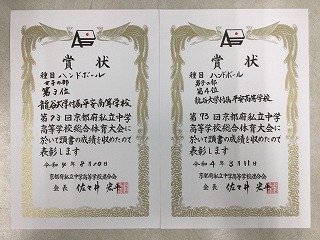 賞状
種目 ハンドボール
女子の部
第3位
龍谷大学付属平安高等学校
第73回京都府私立中学
高等学校総合体育大会に
於いて頭書の成績を収めたので
表彰します
令和4年8月10日
京都府私立中学高等学校連合会
会長 佐々井宏平
賞状
種目 ハンドボール
男子の部
第4位
龍谷大学付属平安高等学校
第73回京都府私立中学
高等学校総合体育大会に
於いて頭書の成績を収めたので
表彰します
京都府私立中学高等学校連合会
会長 佐々井宏平